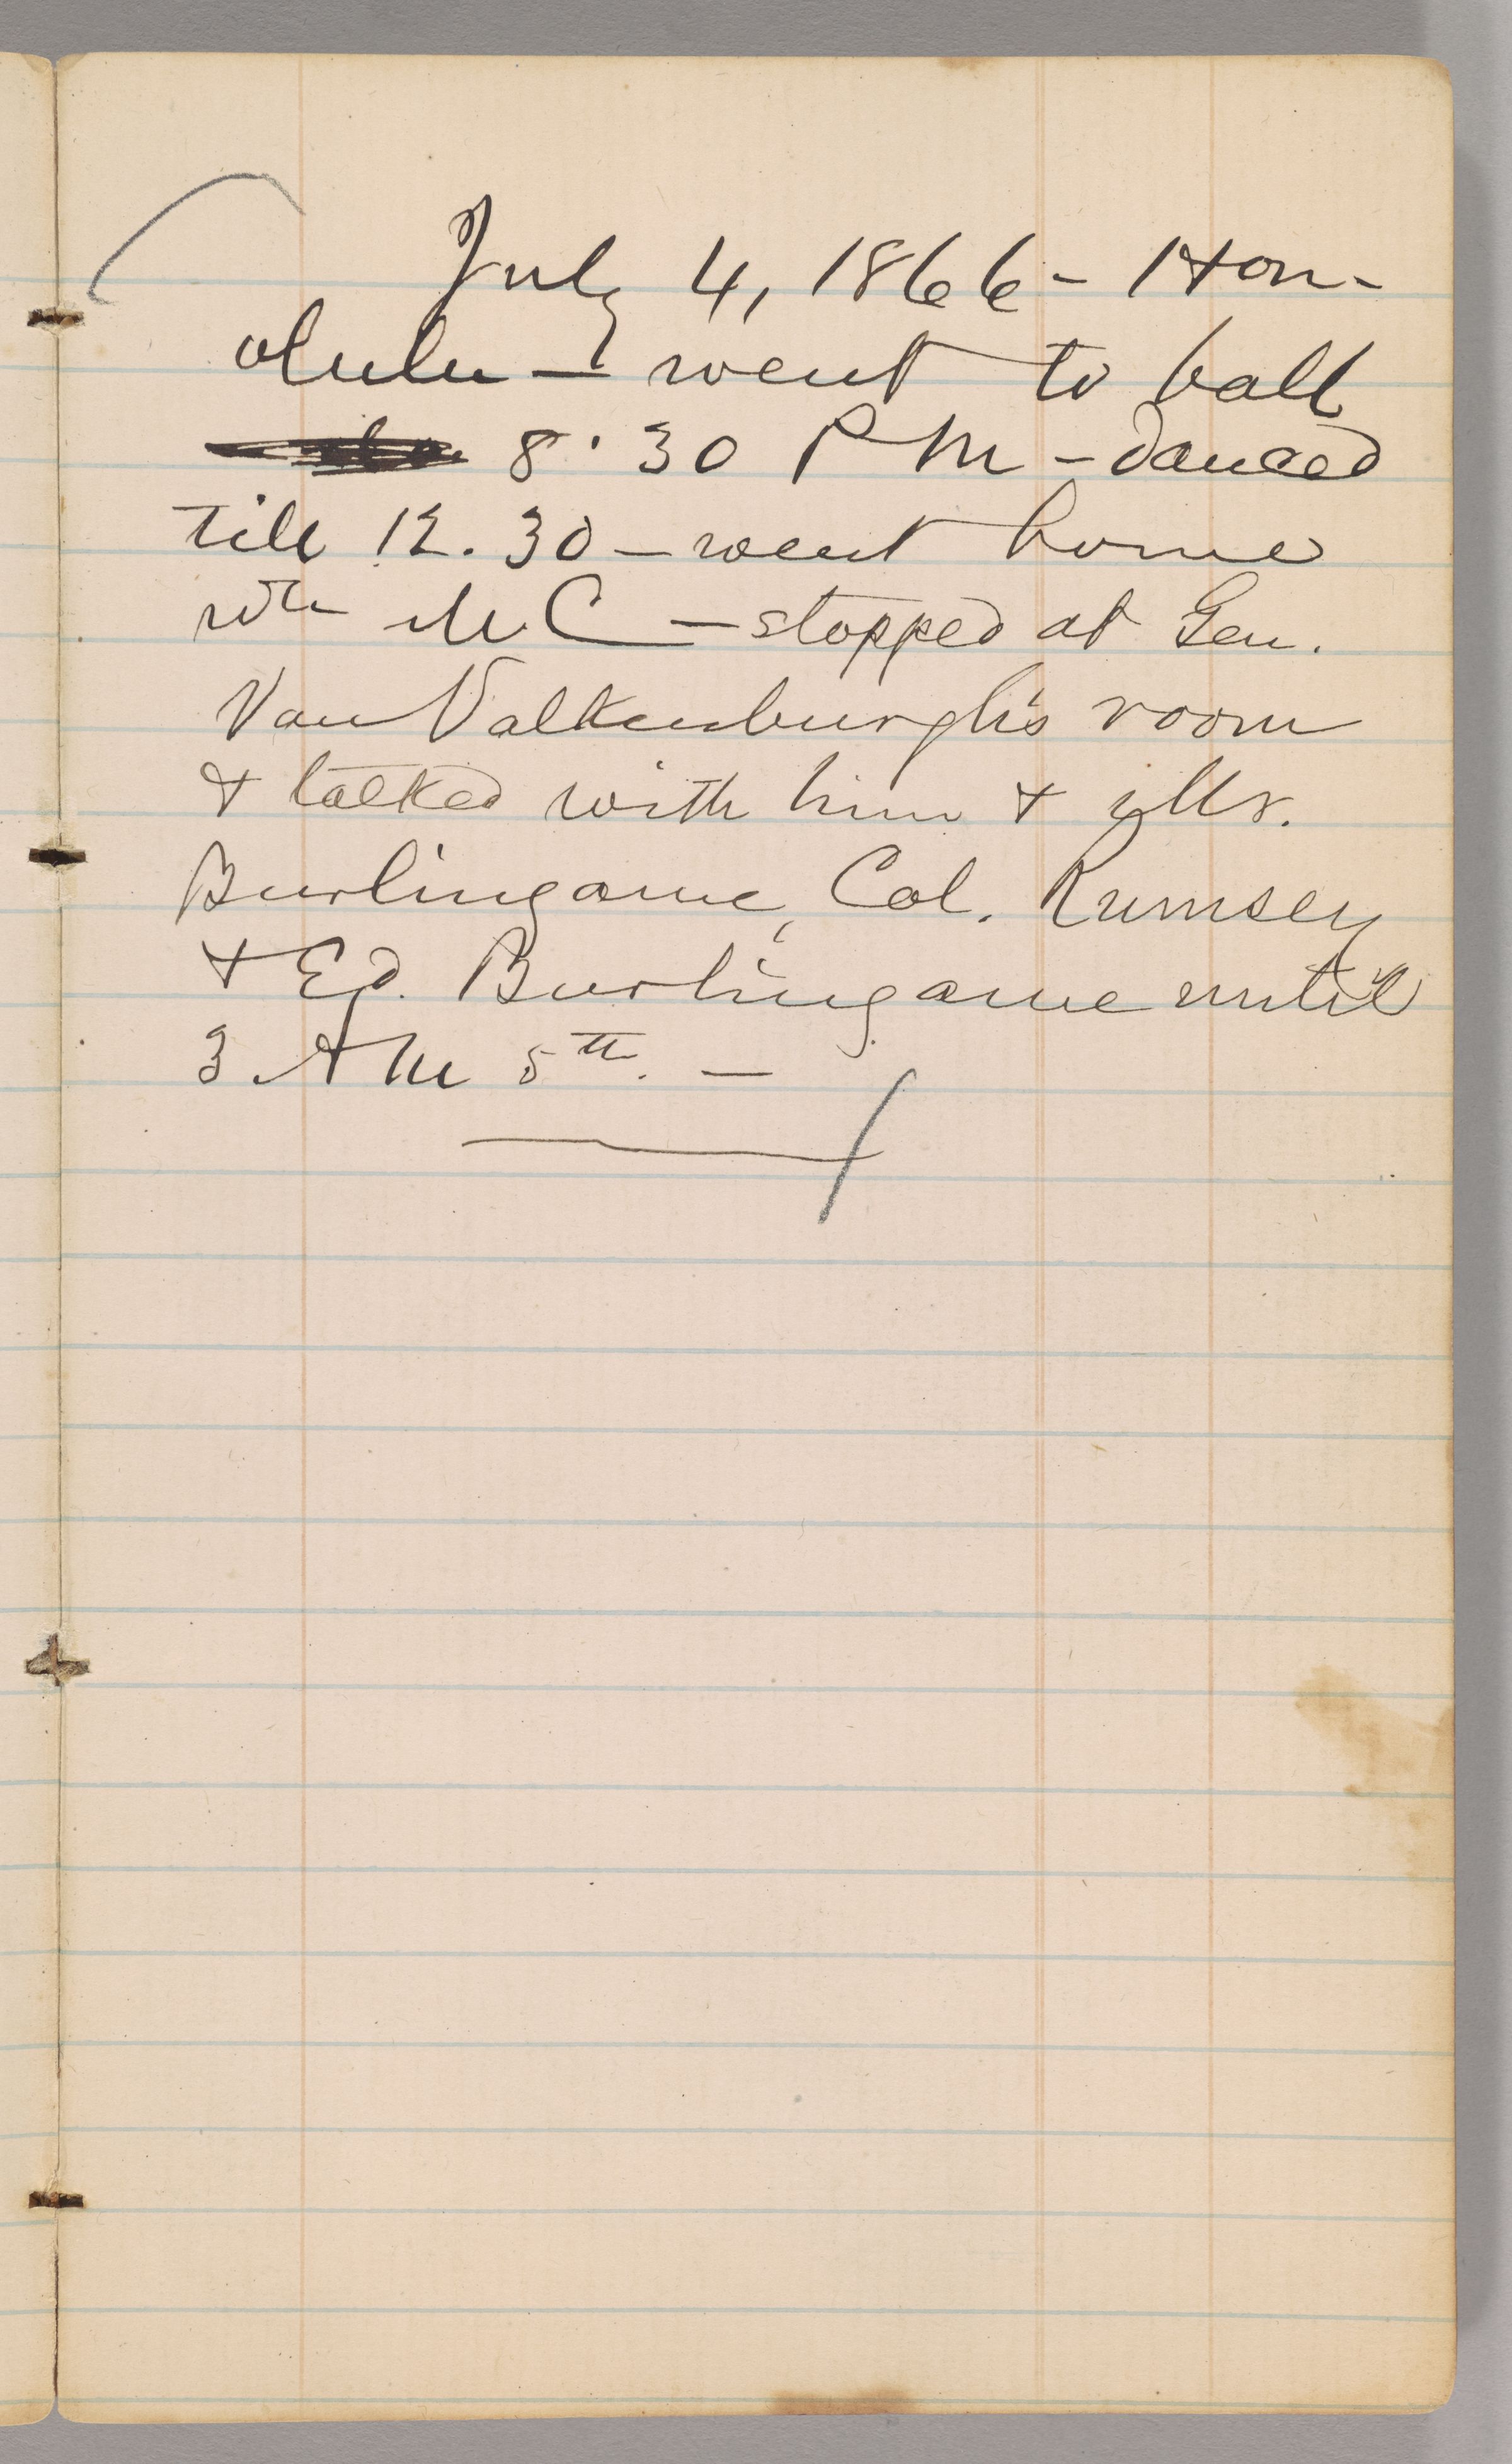 July 4, 1866 - Hon-
olulu — went to ball
8.30 P M - danced
till 12.30 — went home
wth M C — stopped at Gen.
Van Valkenburgh's room
& talked with him & Mr.
Burlingame, Col. Rumsey
& Ed. Burlingame until
3 A M 5th. —